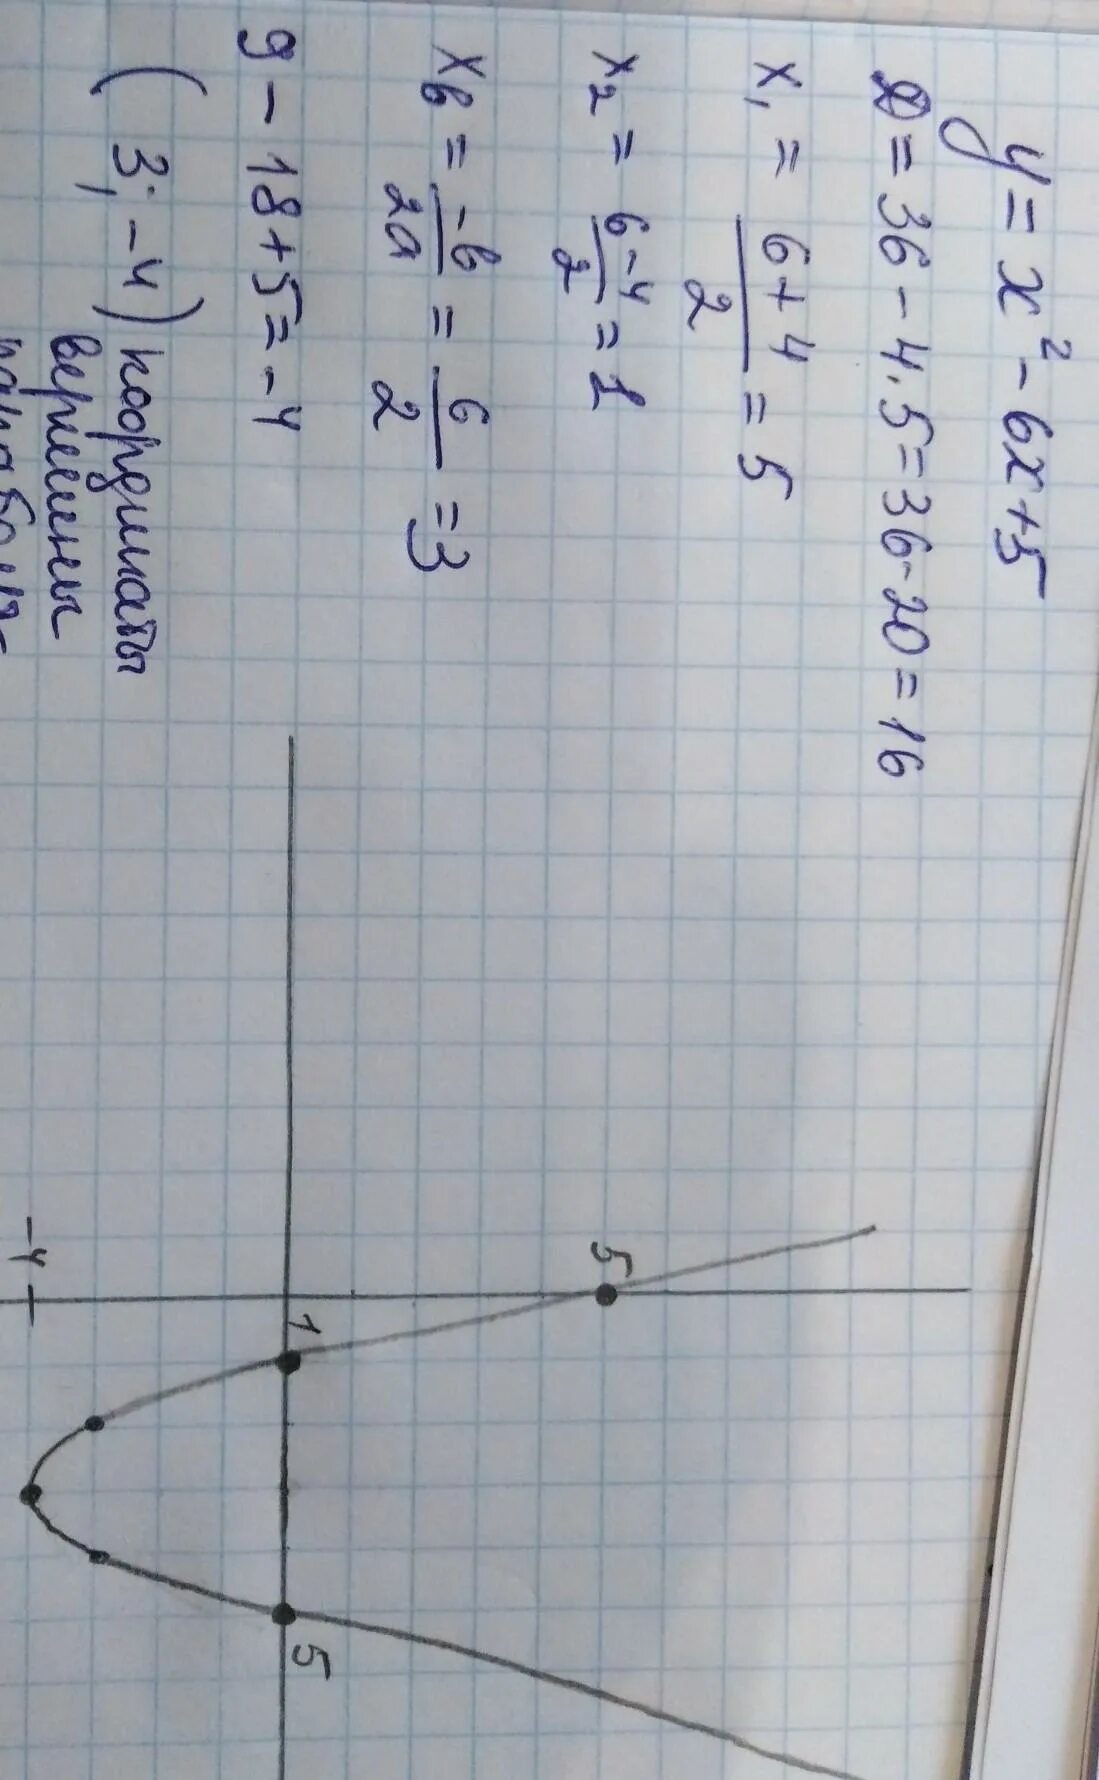 y = x² - 6x + 5
D = 36 - 4·5 = 36 - 20 = 16
x₁ = (6 + 4)/2 = 5
x₂ = (6 - 4)/2 = 1
xв = -в/2a = 6/2 = 3
9 - 18 + 5 = -4
(3; -4) координаты
вершины
5
1
5
-4